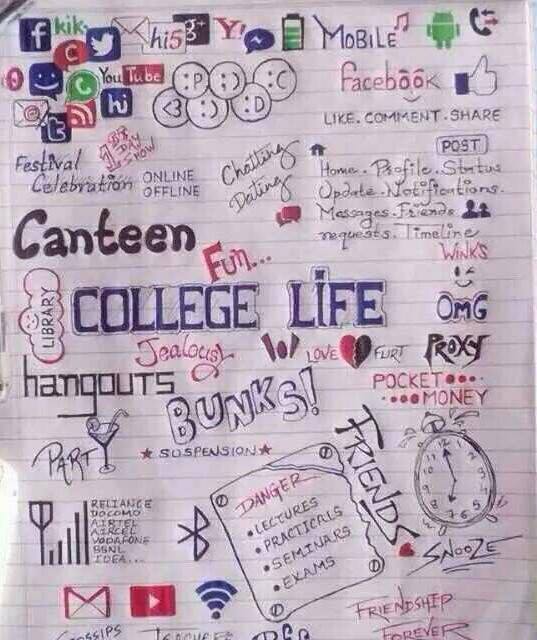 f kik
hi5
g+
Y!
MOBILE
You Tube
hi
t
:P :) :C
<3 :) :D
facebook
LIKE. COMMENT. SHARE
Festival
Celebration
ONLINE
OFFLINE
Chatting
Dating
POST
Home. Profile. Status
Update. Notifications.
Messages. Friends
requests. Timeline
Canteen
Fun...
WINKS
LIBRARY
COLLEGE LIFE
OMG
Jealousy
LOVE FLIRT
PROXY
hangouts
BUNKS!
POCKET
MONEY
PARTY
SUSPENSION
FRIENDS
RELIANCE
DOCOMO
AIRTEL
AIRCEL
VODAFONE
BSNL
IDEA...
DANGER
• LECTURES
• PRACTICALS
• SEMINARS
• EXAMS
SNOOZE
FRIENDSHIP
FOREVER
GOSSIPS